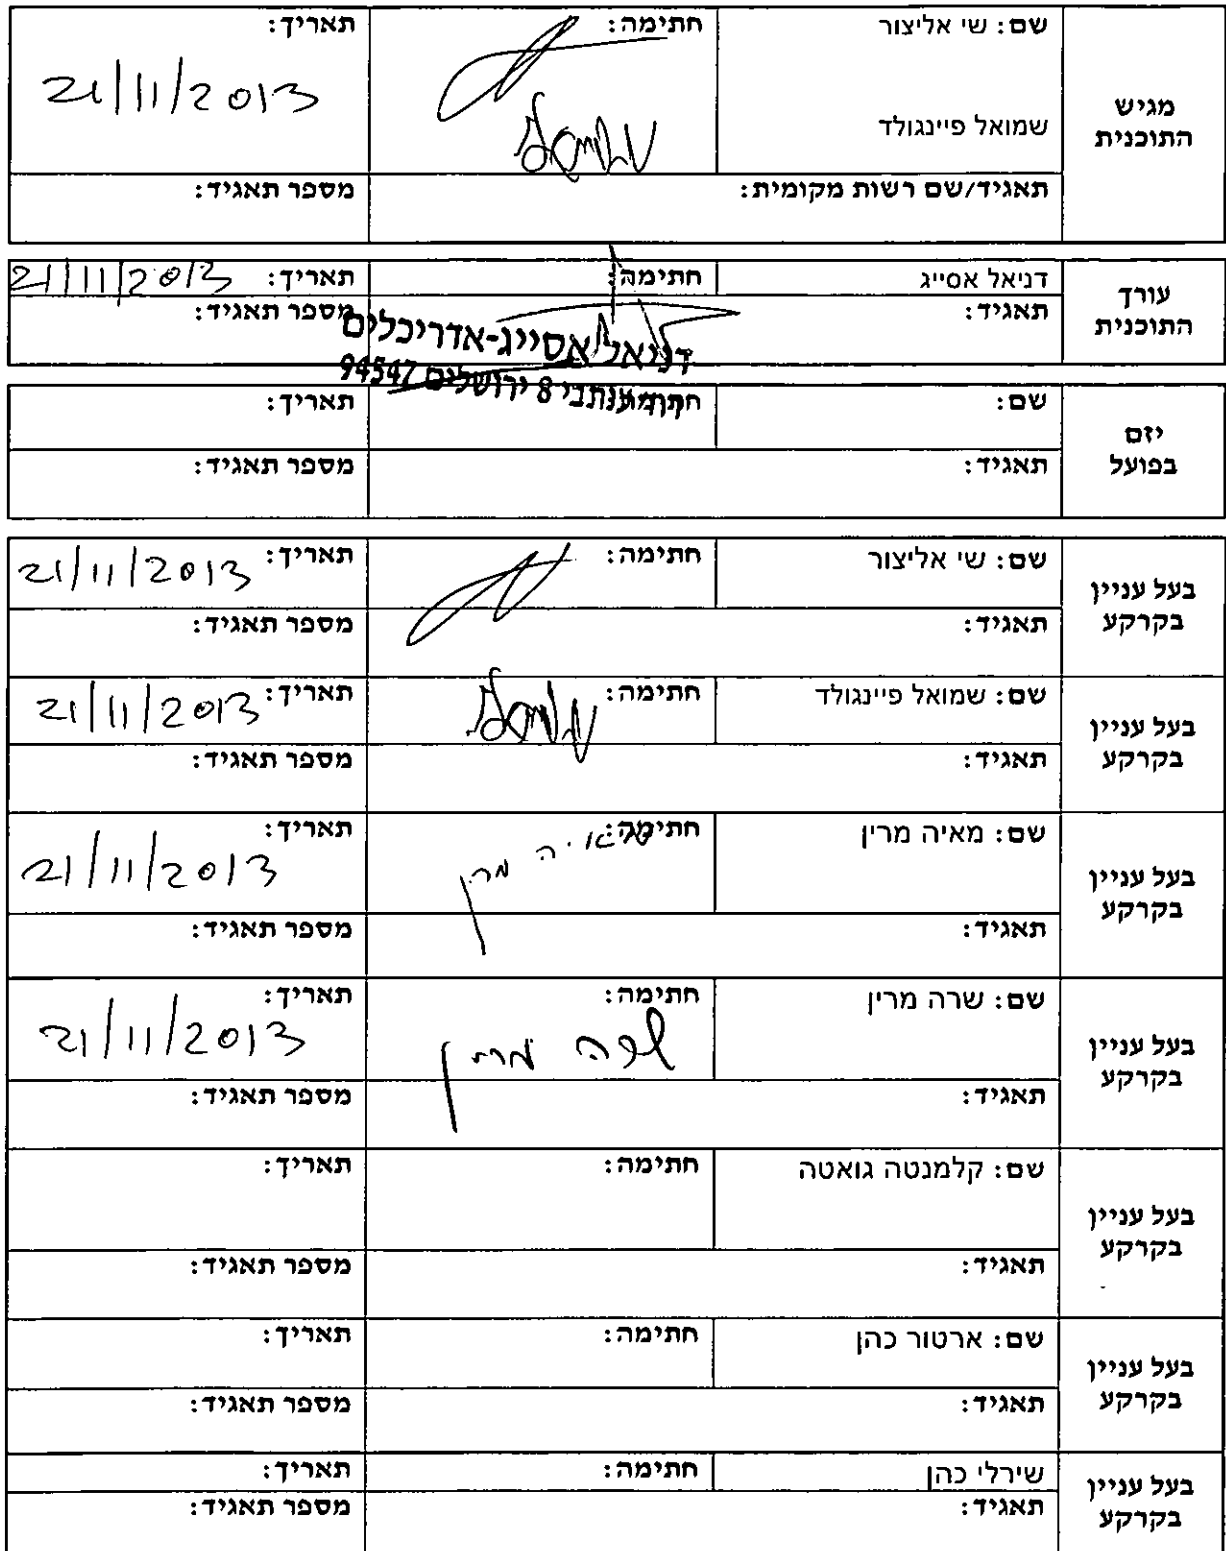 מגיש התוכנית
שם: שי אליצור
שמואל פיינגולד
חתימה:
תאריך:
21/11/2013
תאגיד/שם רשות מקומית:
מספר תאגיד:
עורך התוכנית
דניאל אסייג
חתימה:
תאריך: 21/11/2013
תאגיד:
מספר תאגיד:
דניאל אסייג-אדריכלים
ענתבי 8 ירושלים 94547
יזם בפועל
שם:
תאריך:
תאגיד:
מספר תאגיד:
בעל עניין בקרקע
שם: שי אליצור
חתימה:
תאריך: 21/11/2013
תאגיד:
מספר תאגיד:
בעל עניין בקרקע
שם: שמואל פיינגולד
חתימה: שמואל
תאריך: 21/11/2013
תאגיד:
מספר תאגיד:
בעל עניין בקרקע
שם: מאיה מרין
חתימה: מאיה מרין
תאריך: 21/11/2013
תאגיד:
מספר תאגיד:
בעל עניין בקרקע
שם: שרה מרין
חתימה: שרה מרין
תאריך: 21/11/2013
תאגיד:
מספר תאגיד:
בעל עניין בקרקע
שם: קלמנטה גואטה
חתימה:
תאריך:
תאגיד:
מספר תאגיד:
בעל עניין בקרקע
שם: ארטור כהן
חתימה:
תאריך:
תאגיד:
מספר תאגיד:
בעל עניין בקרקע
שירלי כהן
חתימה:
תאריך:
תאגיד:
מספר תאגיד: